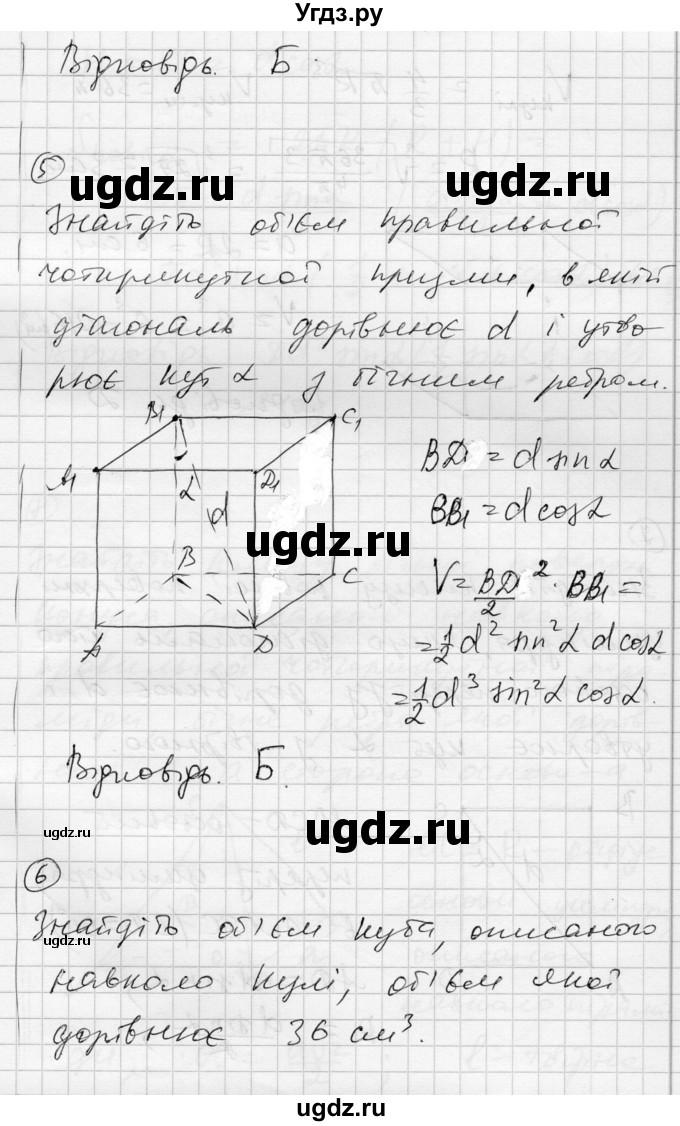 Угдз.ру
Відповідь. Б.
5
ugdz.ru ugdz.ru
Знайдіть об'єм правильної
чотирикутної призми, в якій
діагональ дорівнює d і утво-
рює кут α з бічним ребром.
B₁ C₁
A₁ α D₁
d
B C
A D
ugdz.ru
BD = d sin α
BB₁ = d cos α
V = BD²/2 · BB₁ =
= 1/2 d² sin² α d cos α
= 1/2 d³ sin² α cos α.
Відповідь. Б.
ugdz.ru ugdz.ru
6
Знайдіть об'єм куба, описаного
навколо кулі, об'єм якої
дорівнює 36 см³.
ugdz.ru ugdz.ru
ugdz.ru